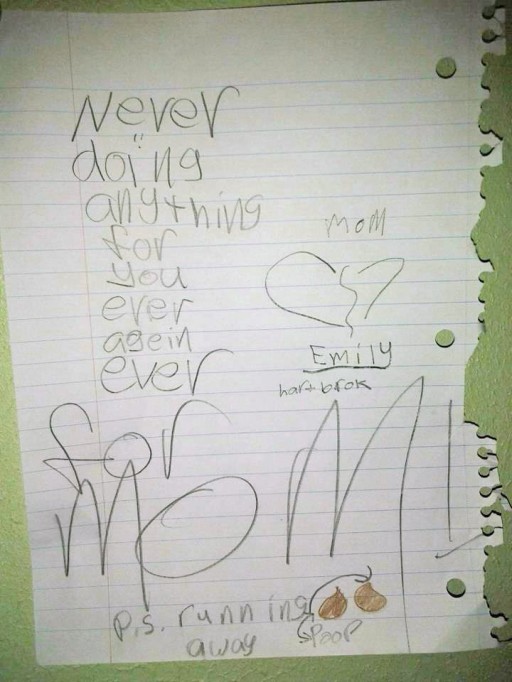 Never
doing
anything
for
you
ever
agein
ever
Mom
Emily
hart brok
for
MOM!
p.s. running
away
Poop